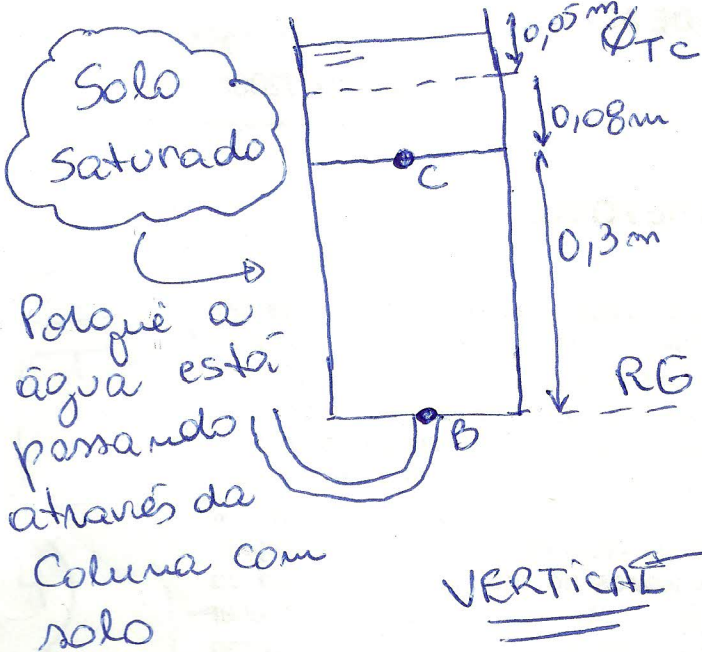 Solo
saturado
Porquê a
água está
passando
através da
Coluna com
solo
0,05m
ØTC
0,08m
C
0,3m
RG
B
VERTICAL